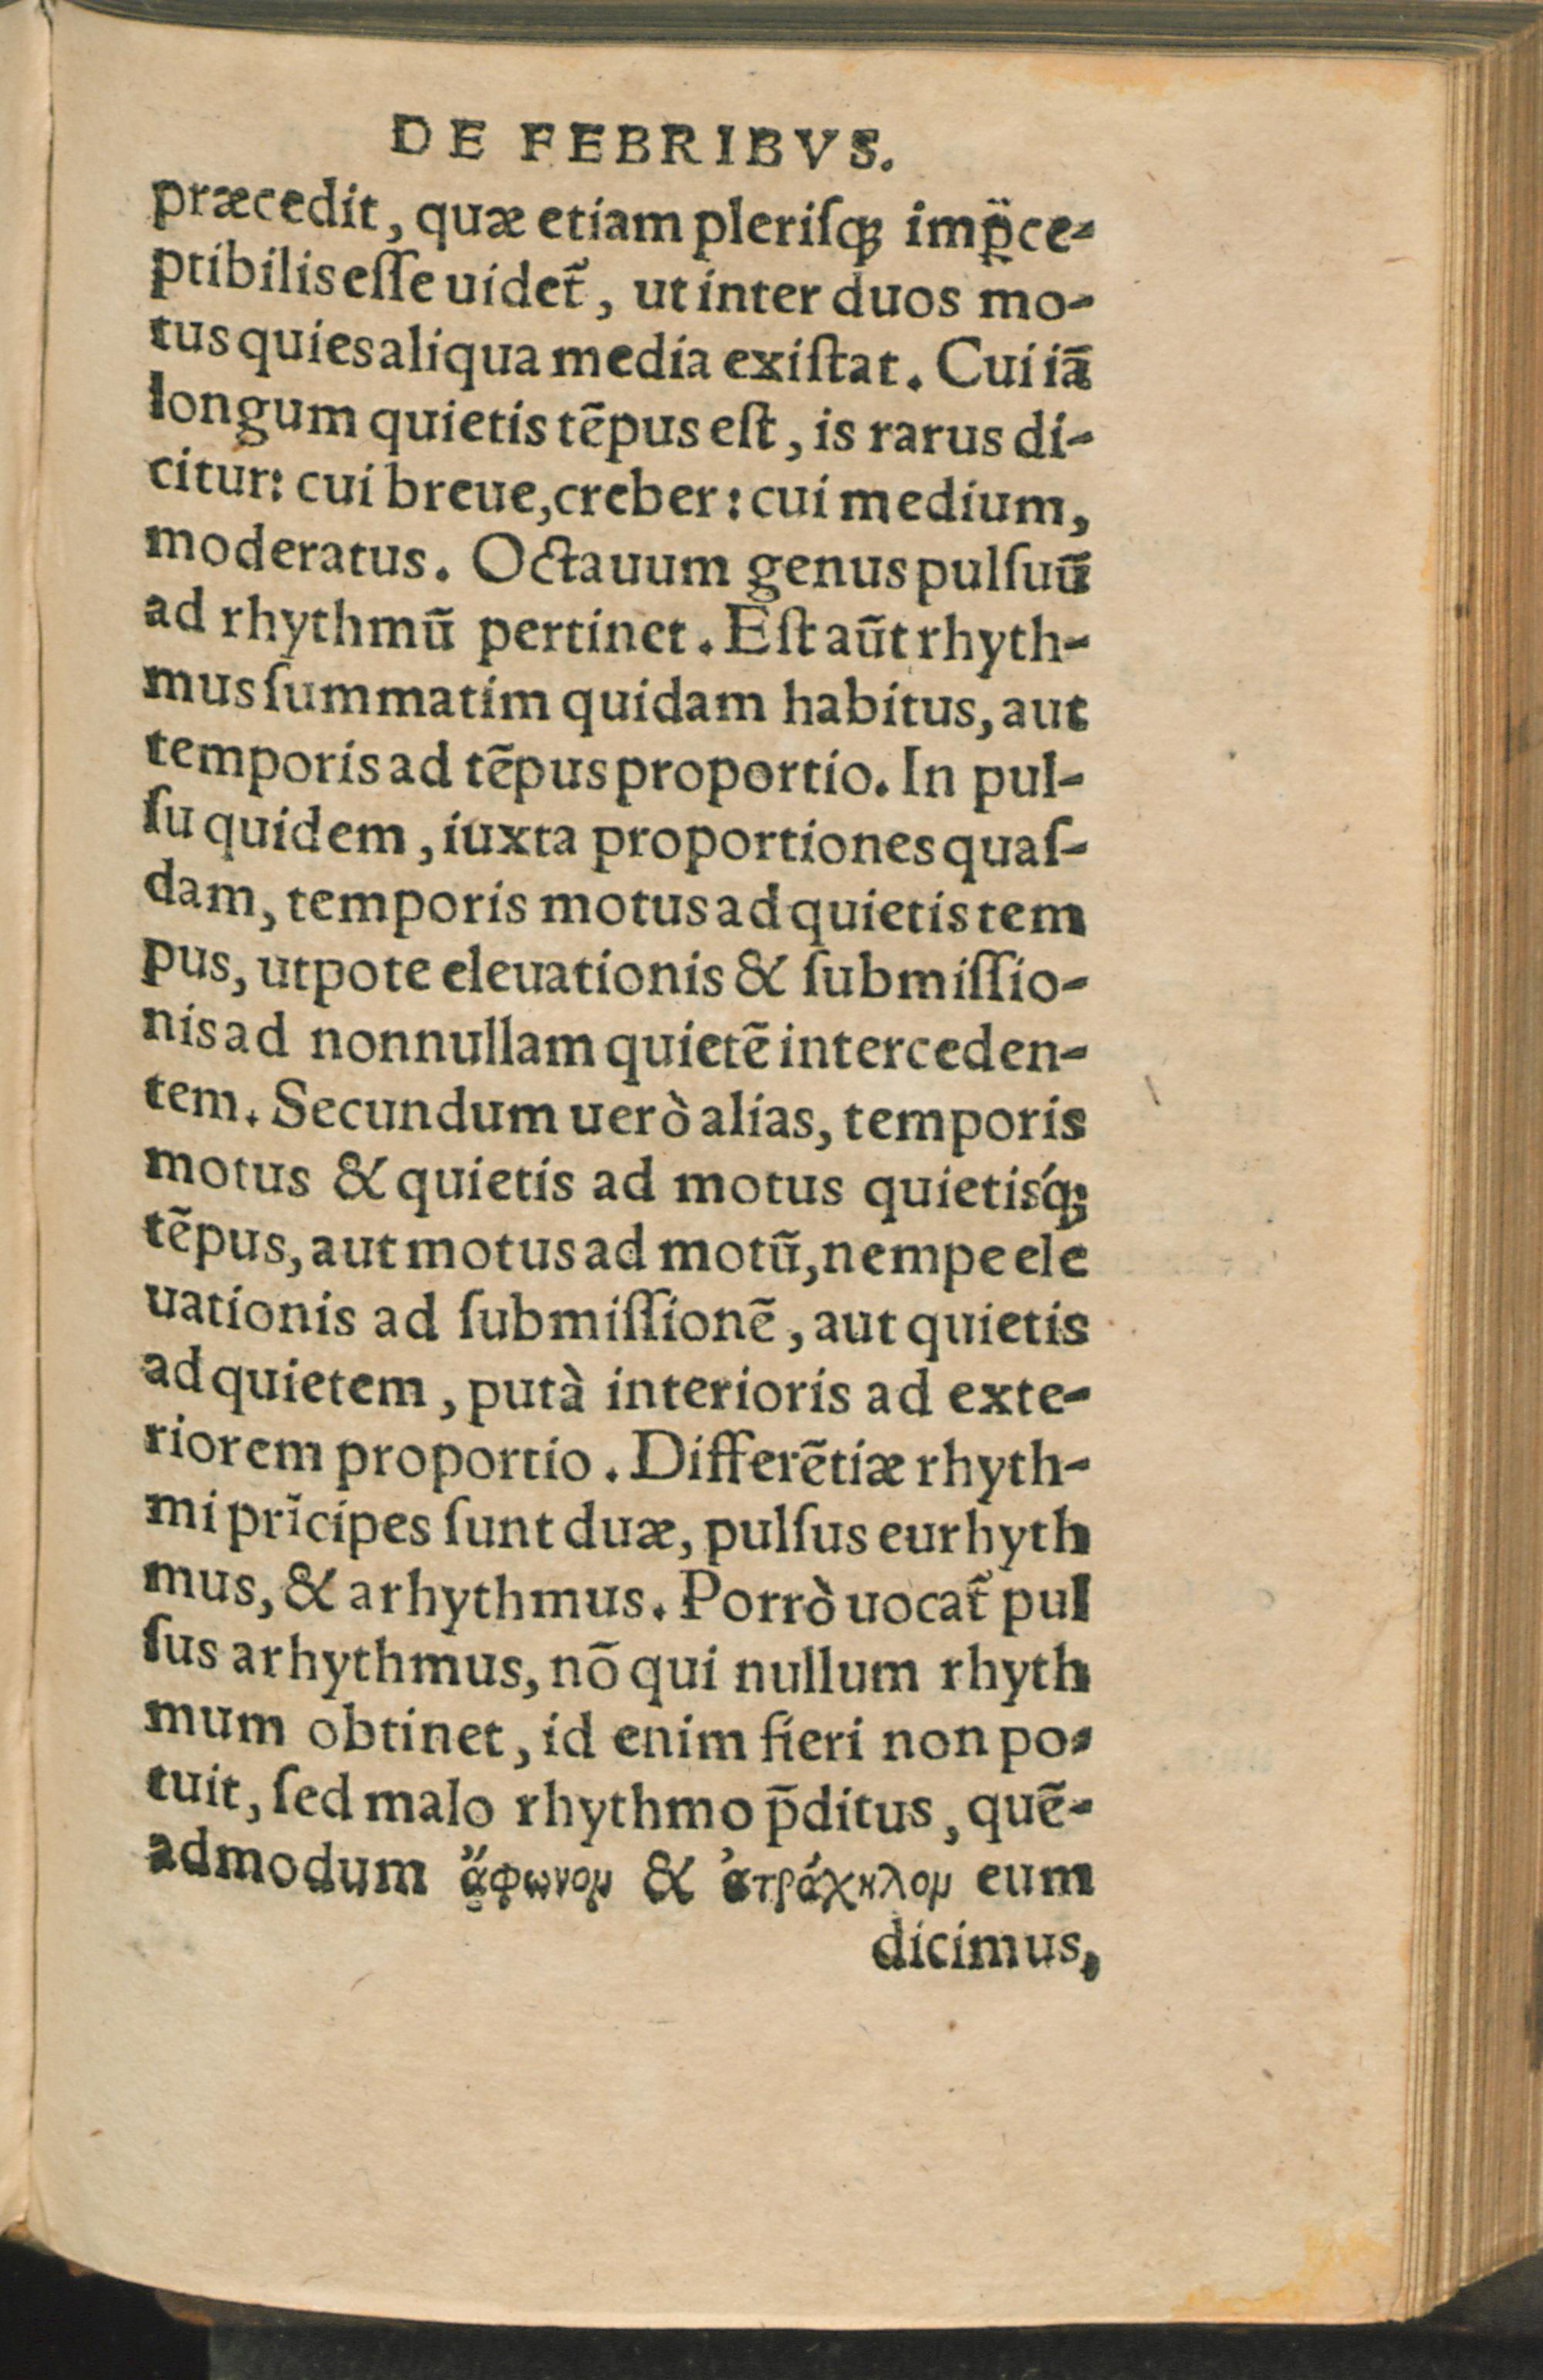 DE FEBRIBVS.
præcedit, quæ etiam pleriſqꝫ imꝑce-
ptibilis eſſe uidet̃, ut inter duos mo-
tus quies aliqua media exiſtat. Cui iã
longum quietis tẽpus eſt, is rarus di-
citur: cui breue, creber: cui medium,
moderatus. Octauum genus pulſuũ
ad rhythmũ pertinet. Eſt aũt rhyth-
mus ſummatim quidam habitus, aut
temporis ad tẽpus proportio. In pul-
ſu quidem, iuxta proportiones quaſ-
dam, temporis motus ad quietis tem
pus, utpote eleuationis & ſubmiſſio-
nis ad nonnullam quietẽ interceden-
tem. Secundum uerò alias, temporis
motus & quietis ad motus quietis´qꝫ
tẽpus, aut motus ad motũ, nempe ele
uationis ad ſubmiſſionẽ, aut quietis
ad quietem, putà interioris ad exte-
riorem proportio. Differẽtiæ rhyth-
mi prĩcipes ſunt duæ, pulſus eurhyth
mus, & arhythmus. Porrò uocat̃ pul
ſus arhythmus, nõ qui nullum rhyth
mum obtinet, id enim fieri non po-
tuit, ſed malo rhythmo p̃ditus, quẽ-
admodum ἄφωνομ & ἀτράχηλομ eum
dicimus,